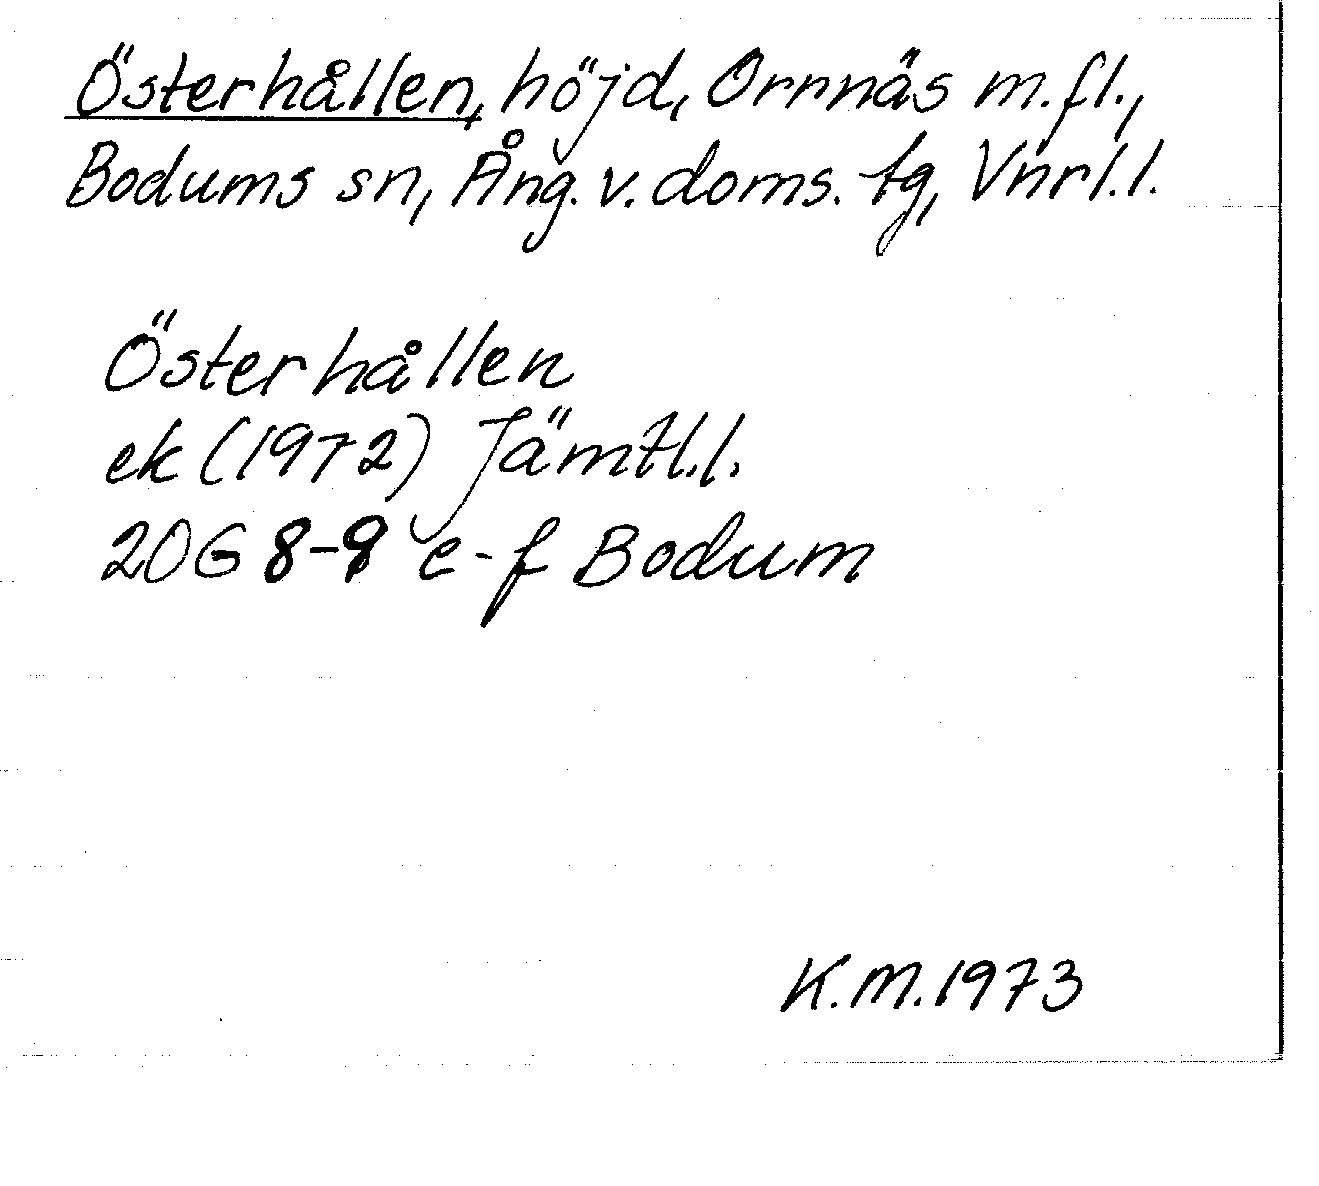 Österhållen, höjd, Orrnäs m.fl.,
Bodums sn, Ång. v. doms. tg, Vnrl.l.
Österhållen
ek (1972) Jämtl.l.
20G 8-9 e-f Bodum
K.M. 1973